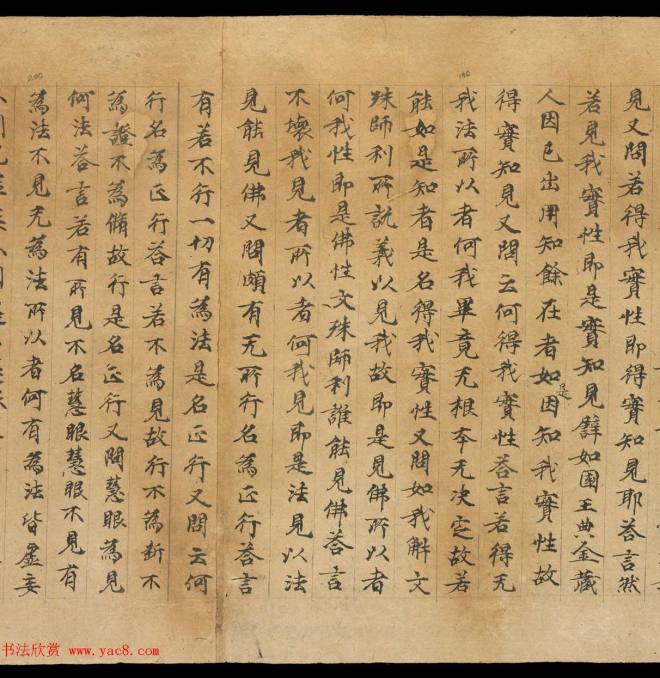 見又問若得我實性即得實知見耶荅言然
若見我實性即是實知見譬如國王典金藏
人因已出用知餘在者如是因知我實性故
得實知見又問云何得我實性荅言若得无
190
我法所以者何我畢竟无根本无决定故若
能如是知者是名得我實性又問如我解文
殊師利所說義以見我故即是見佛所以者
何我性即是佛性文殊師利誰能見佛荅言
不壞我見者所以者何我見即是法見以法
見能見佛又問頗有无所行名為正行荅言
有若不行一切有為法是名正行又問云何
行名為正行荅言若不為見故行不為断不
為證不為脩故行是名正行又問慧眼為見
何法荅言若有所見不名慧眼慧眼不見有
200
為法不見无為法所以者何有為法皆虛妄
书法欣赏 www.yac8.com